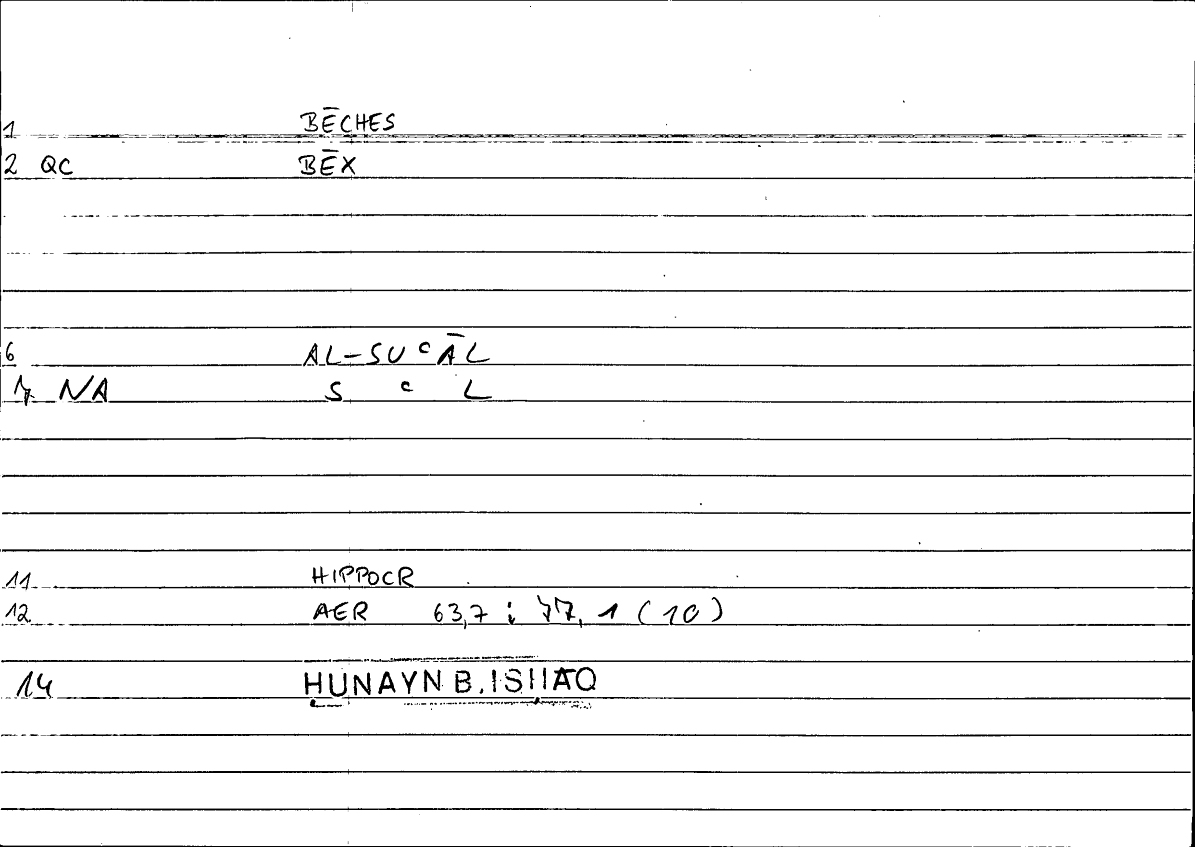 1 BĒCHES
2 QC BĒX
6 AL-SUᶜĀL
7 NA S ᶜ L
11 HIPPOCR
12 AER 63,7 ; 77, 1 (10)
14 ḤUNAYN B. ISḤĀQ